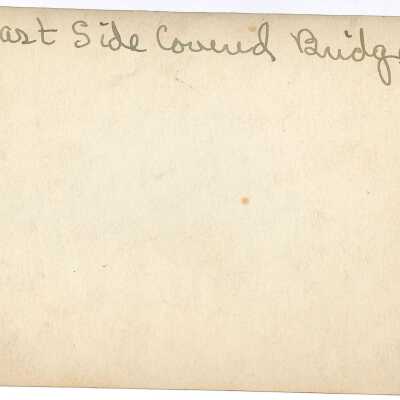 ast Side Covered Bridge